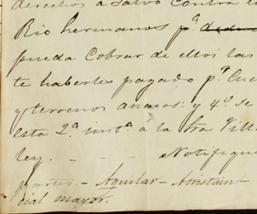 derechos a salvo contra l
Rio hermanos pª
pueda Cobrar de ellos las
te haberles pagado pr Cue
y terrenos anexos: y 4º. se
esta 2ª instª a la Sra Vill
ley. - - Notifique
- Aguilar - Asistant
cial mayor.